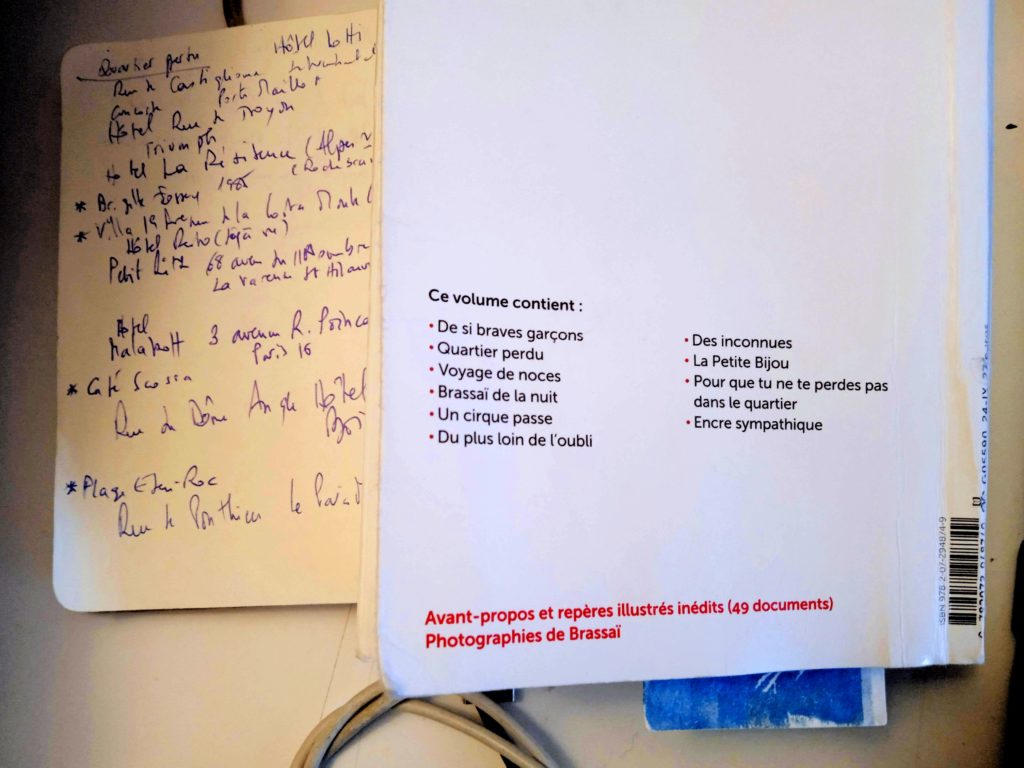 Quartier perdu
Hôtel Lotti
Rue de Castiglione
Concorde Porte Maillot
Hôtel Rue de Troyon
Triomphe
Hotel La Résidence (Alpes
* Brigitte Fossey
* Villa 19 Avenue de la Costa
Hôtel (déjà vu)
Petit Ritz 68 avenue du 11 Novembre
La Varenne St Hilaire
Hôtel
Malakoff 3 avenue R. Poinca
Paris 16
* Café Scossa
Rue du Dôme Angle Hôtel
* Plage Eden-Roc
Rue de Ponthieu le Parad
Ce volume contient :
• De si braves garçons
• Quartier perdu
• Voyage de noces
• Brassaï de la nuit
• Un cirque passe
• Du plus loin de l'oubli
• Des inconnues
• La Petite Bijou
• Pour que tu ne te perdes pas
dans le quartier
• Encre sympathique
Avant-propos et repères illustrés inédits (49 documents)
Photographies de Brassaï
ISBN 978-2-07-294874-9
G05590 24-IX